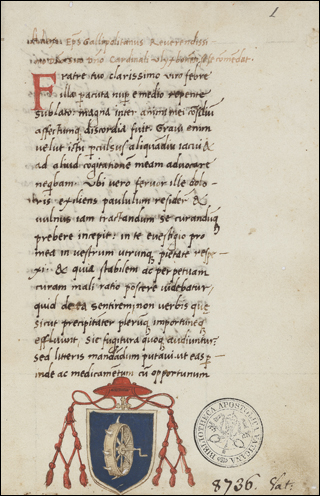 1
Eps Gallipolitanus Reverendiss
Cardinali
Fratre tuo clarissimo viro febre
illa pacuta nup e medio repente
sublato: magna inter animi mei consiliu
affectumq discordia fuit. Gravi enim
velut ictu pculsus aliquandiu iacui &
ad aliud cogitatione meam advocare
neqbam. Ubi vero fervor ille dolo
ris expediens paululum resider &
vulnus iam tractandum se curandūq
prebere incepit: in te e vestigio pro
mea in vestrum utrunq pietate respe
xi. & quia stabilem ac perpetuam
curam mali ratio poscere videbatur
quid de ea sentirem non verbis que
sicut precipitater plerūq importuneq
effluunt, sic fugitura quoq audiuntur:
sed litteris mandadum putavi: ut eas p
inde ac medicametum cū opportunum
BIBLIOTHECA APOSTOLICA VATICANA
8736. Lat.